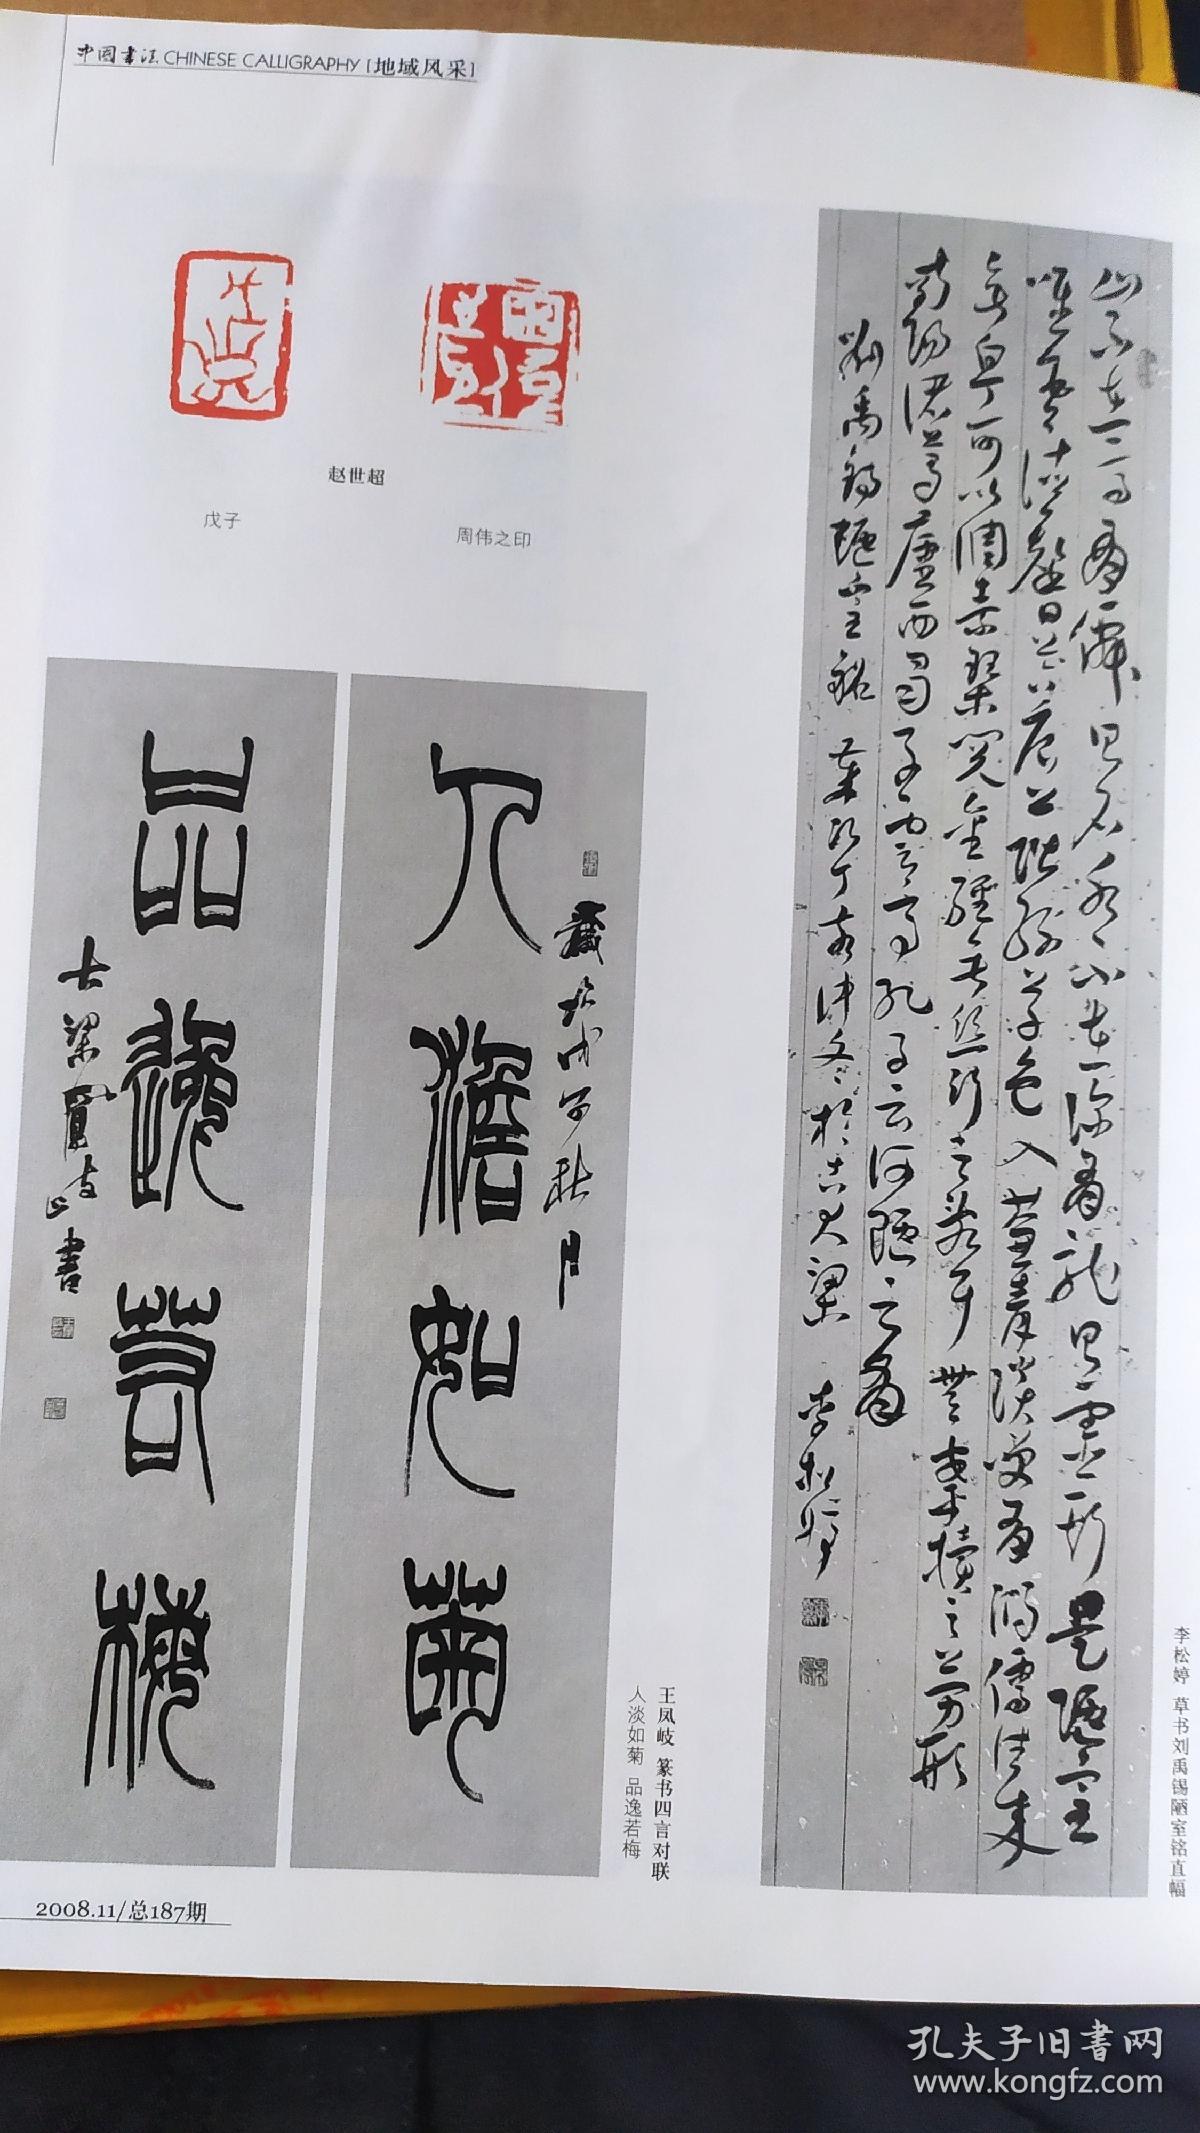 中国书法 CHINESE CALLIGRAPHY [地域风采]
赵世超
戊子
周伟之印
山不在高有僊则名水不在深有龙则灵斯是陋室
唯吾德馨苔痕上阶绿草色入帘青谈笑有鸿儒往来
无白丁可以调素琴阅金经无丝竹之乱耳无案牍之劳形
南阳诸葛庐西蜀子云亭孔子云何陋之有
刘禹锡陋室铭 岁次丁亥仲冬於古大梁 李松婷
李松婷 草书刘禹锡陋室铭直幅
岁在戊子秋月
人澹如菊
品逸若梅
大梁凤岐书
王凤岐 篆书四言对联
人淡如菊 品逸若梅
2008.11/总187期
孔夫子旧书网
www.kongfz.com